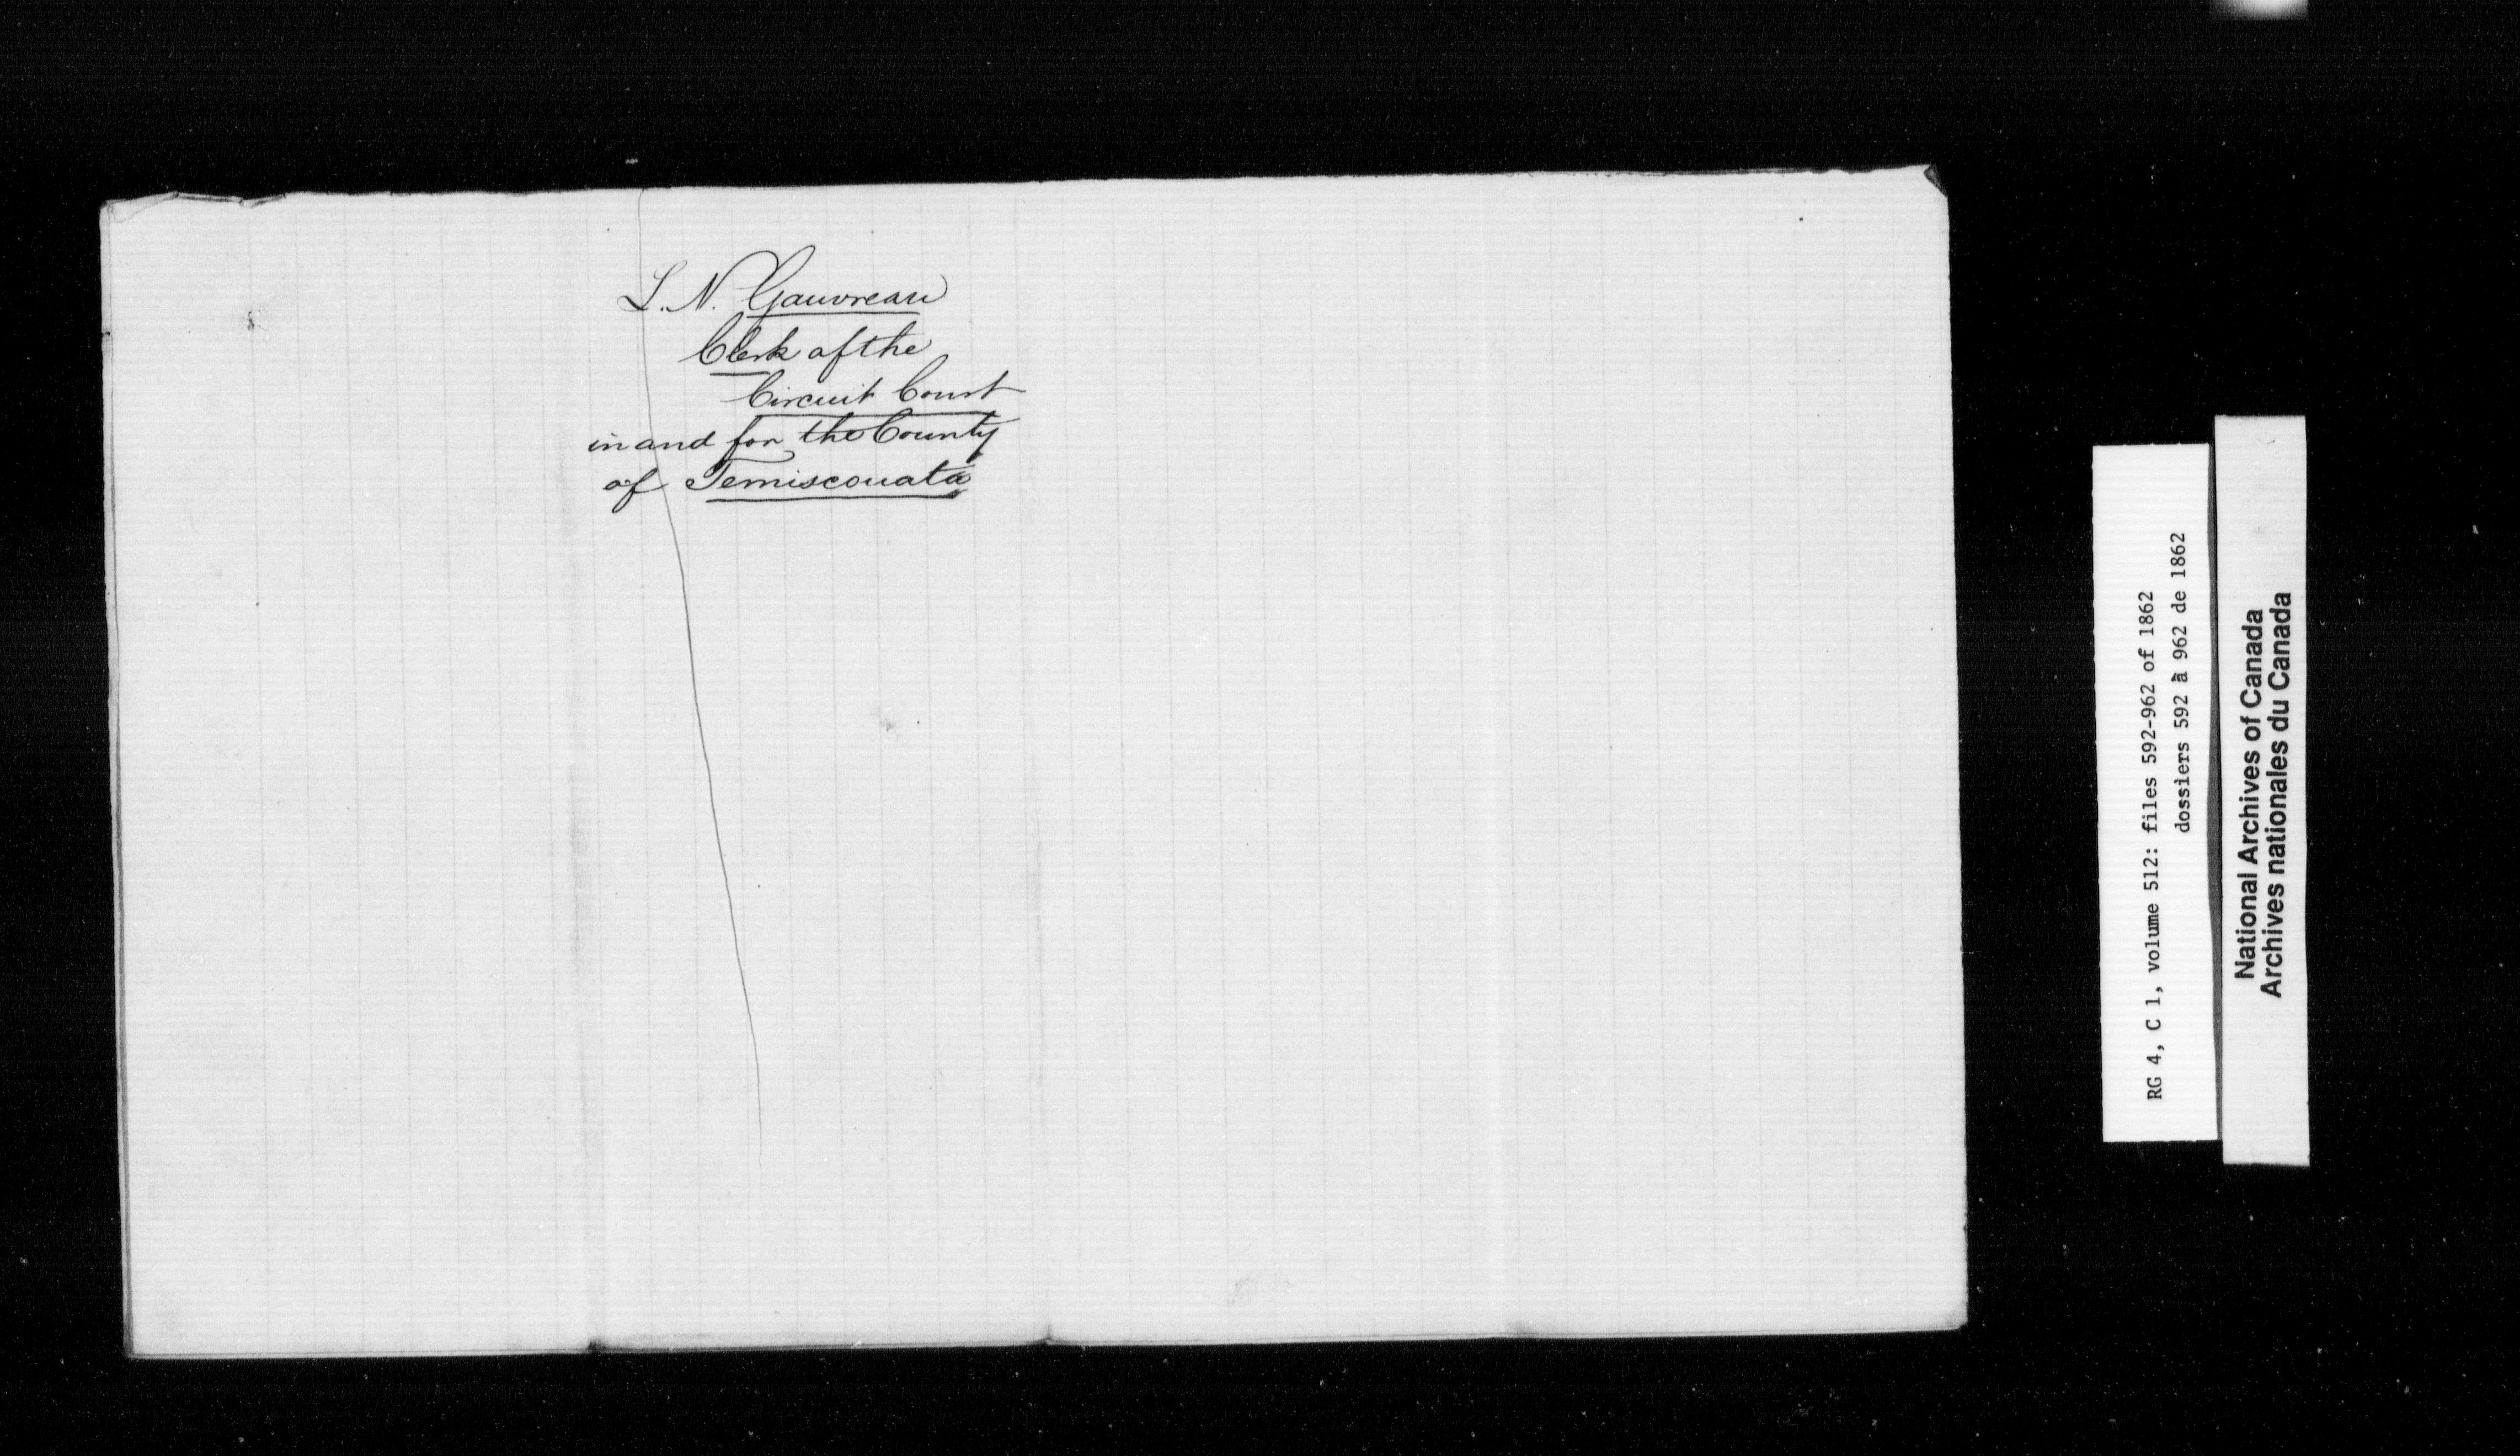 L. N. Gauvreau
Clerk of the
Circuit Court
in and for the County
of Temiscouata
RG 4, C 1, volume 512: files 592-962 of 1862
dossiers 592 à 962 de 1862
National Archives of Canada
Archives nationales du Canada